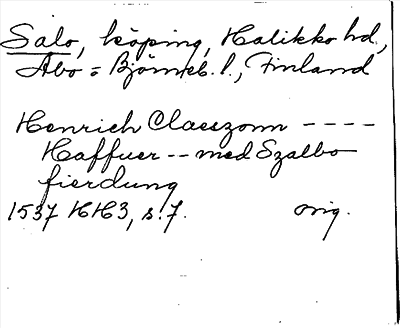 Salo, köping, Halikko hd.,
Åbo = Björneb. l., Finland
Henrich Claeszonn ----
Haffuer -- med Szalbo
fierdung
1537 HH3, s. 7. orig.